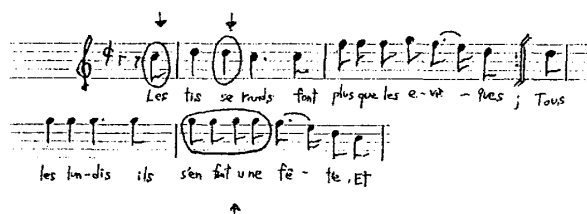 Les tis se rands font plus que les e-vê-ques ; Tous
les lun-dis ils s'en font une fê-te, Et